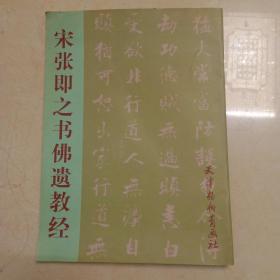 宋张即之书佛遗教经
猛火常當防護
劫功德賊無過瞋恚白
受欲非行道人無法自
瞋猶可恕出家行道無
天津杨柳青画社